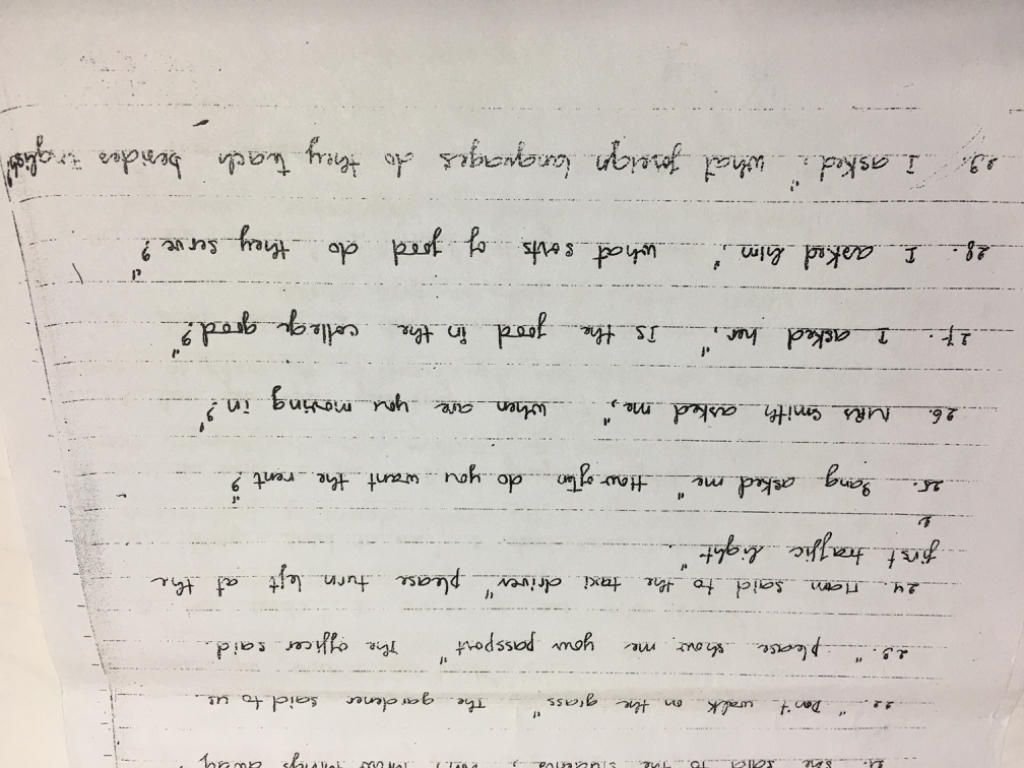 21. she said to the students, "Don't throw things away"
22. "Don't walk on the grass" The gardener said to us.
23. "please show me your passport" The officer said.
24. Nam said to the taxi driver "please turn left at the
first traffic light".
25. Lang asked me "How often do you want the rent"?
26. MRS Smith asked me, "when are you moving in"?
27. I asked her, "Is the food in the college good?"
28. I asked him, "what sorts of food do they serve?"
29. I asked: "what foreign languages do they teach besides English"